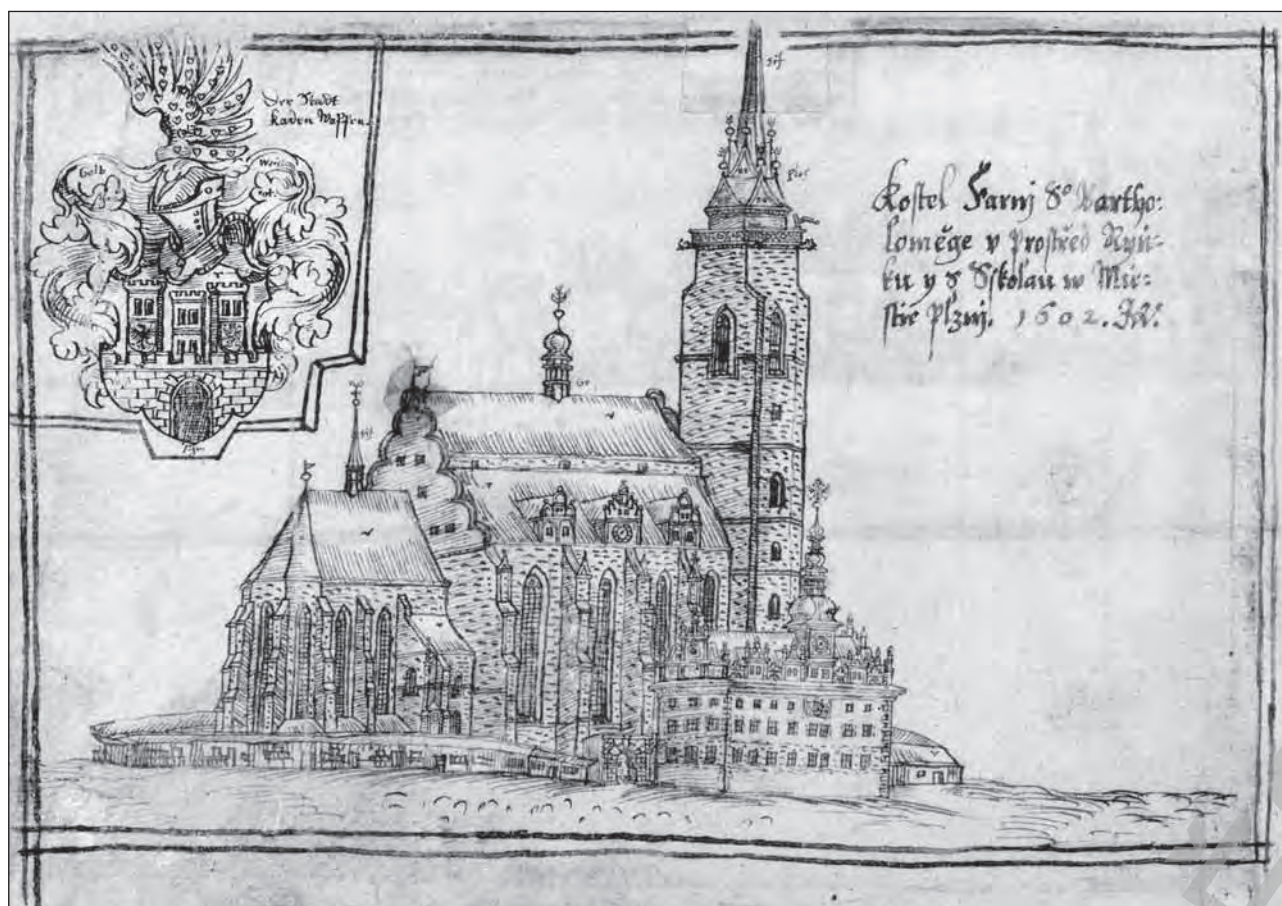 Der Stadt
kaden Wappen.
Gelb
Kostel Farnj S° Bartho:
loměge v prostřed Ryn:
ku y s Sskolau w Mie:
stie Plznj. 1602.